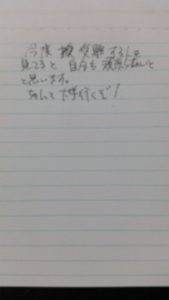 今度 受験する人を
見てると 自分も頑張らないと
と思います。
ちゃんと大学行くぞ!